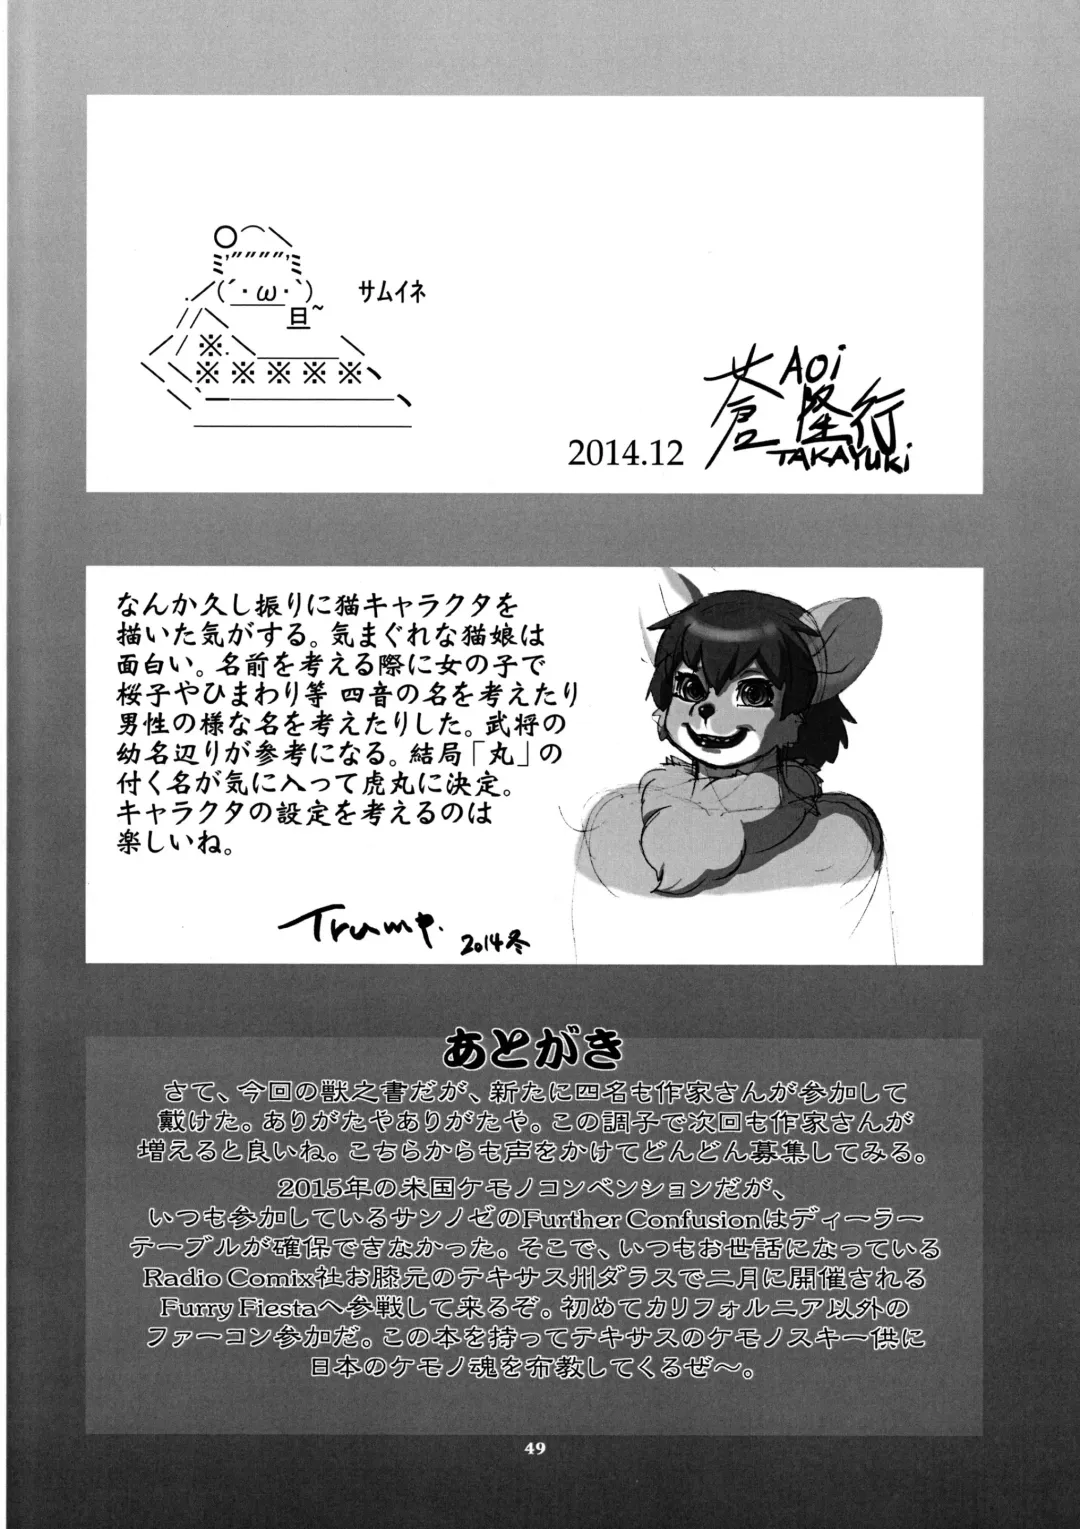 サムイネ
2014.12
蒼隆行
AOi
TAKAYUKi
なんか久し振りに猫キャラクタを
描いた気がする。気まぐれな猫娘は
面白い。名前を考える際に女の子で
桜子やひまわり等 四音の名を考えたり
男性の様な名を考えたりした。武将の
幼名辺りが参考になる。結局「丸」の
付く名が気に入って虎丸に決定。
キャラクタの設定を考えるのは
楽しいね。
Trump.
2014冬
あとがき
さて、今回の獣之書だが、新たに四名も作家さんが参加して
戴けた。ありがたやありがたや。この調子で次回も作家さんが
増えると良いね。こちらからも声をかけてどんどん募集してみる。
2015年の米国ケモノコンベンションだが、
いつも参加しているサンノゼのFurther Confusionはディーラー
テーブルが確保できなかった。そこで、いつもお世話になっている
Radio Comix社お膝元のテキサス州ダラスで二月に開催される
Furry Fiestaへ参戦して来るぞ。初めてカリフォルニア以外の
ファーコン参加だ。この本を持ってテキサスのケモノスキー供に
日本のケモノ魂を布教してくるぜ～。
49